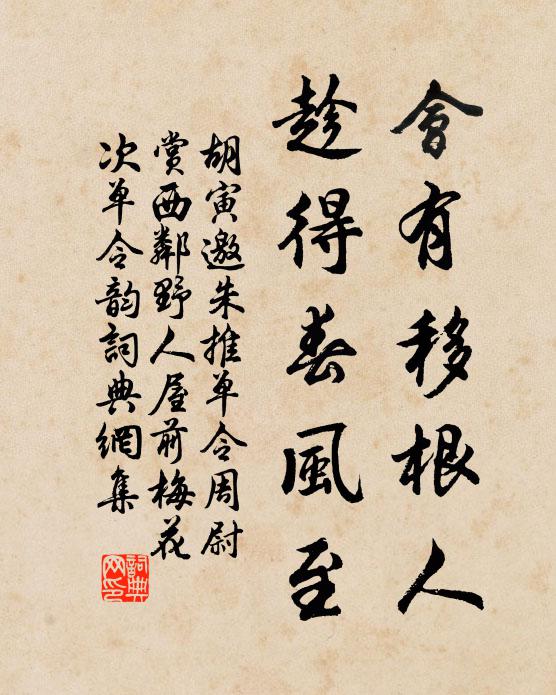 會有移根人
趁得春風至
胡寅邀朱推單令周尉
賞西鄰野人屋前梅花
次單令韵詞典網集
詞典
网印